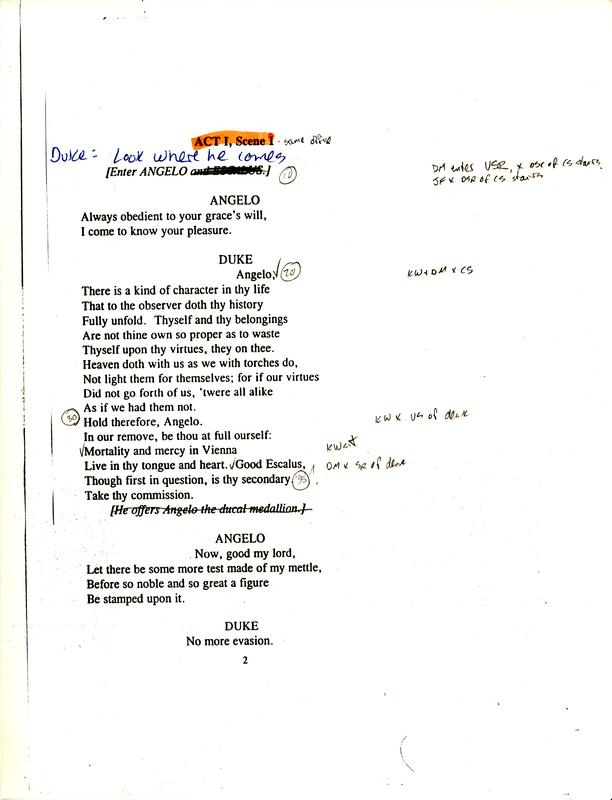 ACT I, Scene I - same office
Duke: Look where he comes
[Enter ANGELO and ESCALUS.] 10
DM enters USR, x DSR of CS stairs
JF x DSR of CS stairs
ANGELO
Always obedient to your grace's will,
I come to know your pleasure.
DUKE
Angelo, 20
KW + DM x CS
There is a kind of character in thy life
That to the observer doth thy history
Fully unfold. Thyself and thy belongings
Are not thine own so proper as to waste
Thyself upon thy virtues, they on thee.
Heaven doth with us as we with torches do,
Not light them for themselves; for if our virtues
Did not go forth of us, 'twere all alike
As if we had them not.
30 Hold therefore, Angelo. KW x US of desk
In our remove, be thou at full ourself:
Mortality and mercy in Vienna
Live in thy tongue and heart. Good Escalus, DM x SR of desk
Though first in question, is thy secondary. 35
Take thy commission.
[He offers Angelo the ducal medallion.]
ANGELO
Now, good my lord,
Let there be some more test made of my mettle,
Before so noble and so great a figure
Be stamped upon it.
DUKE
No more evasion.
2